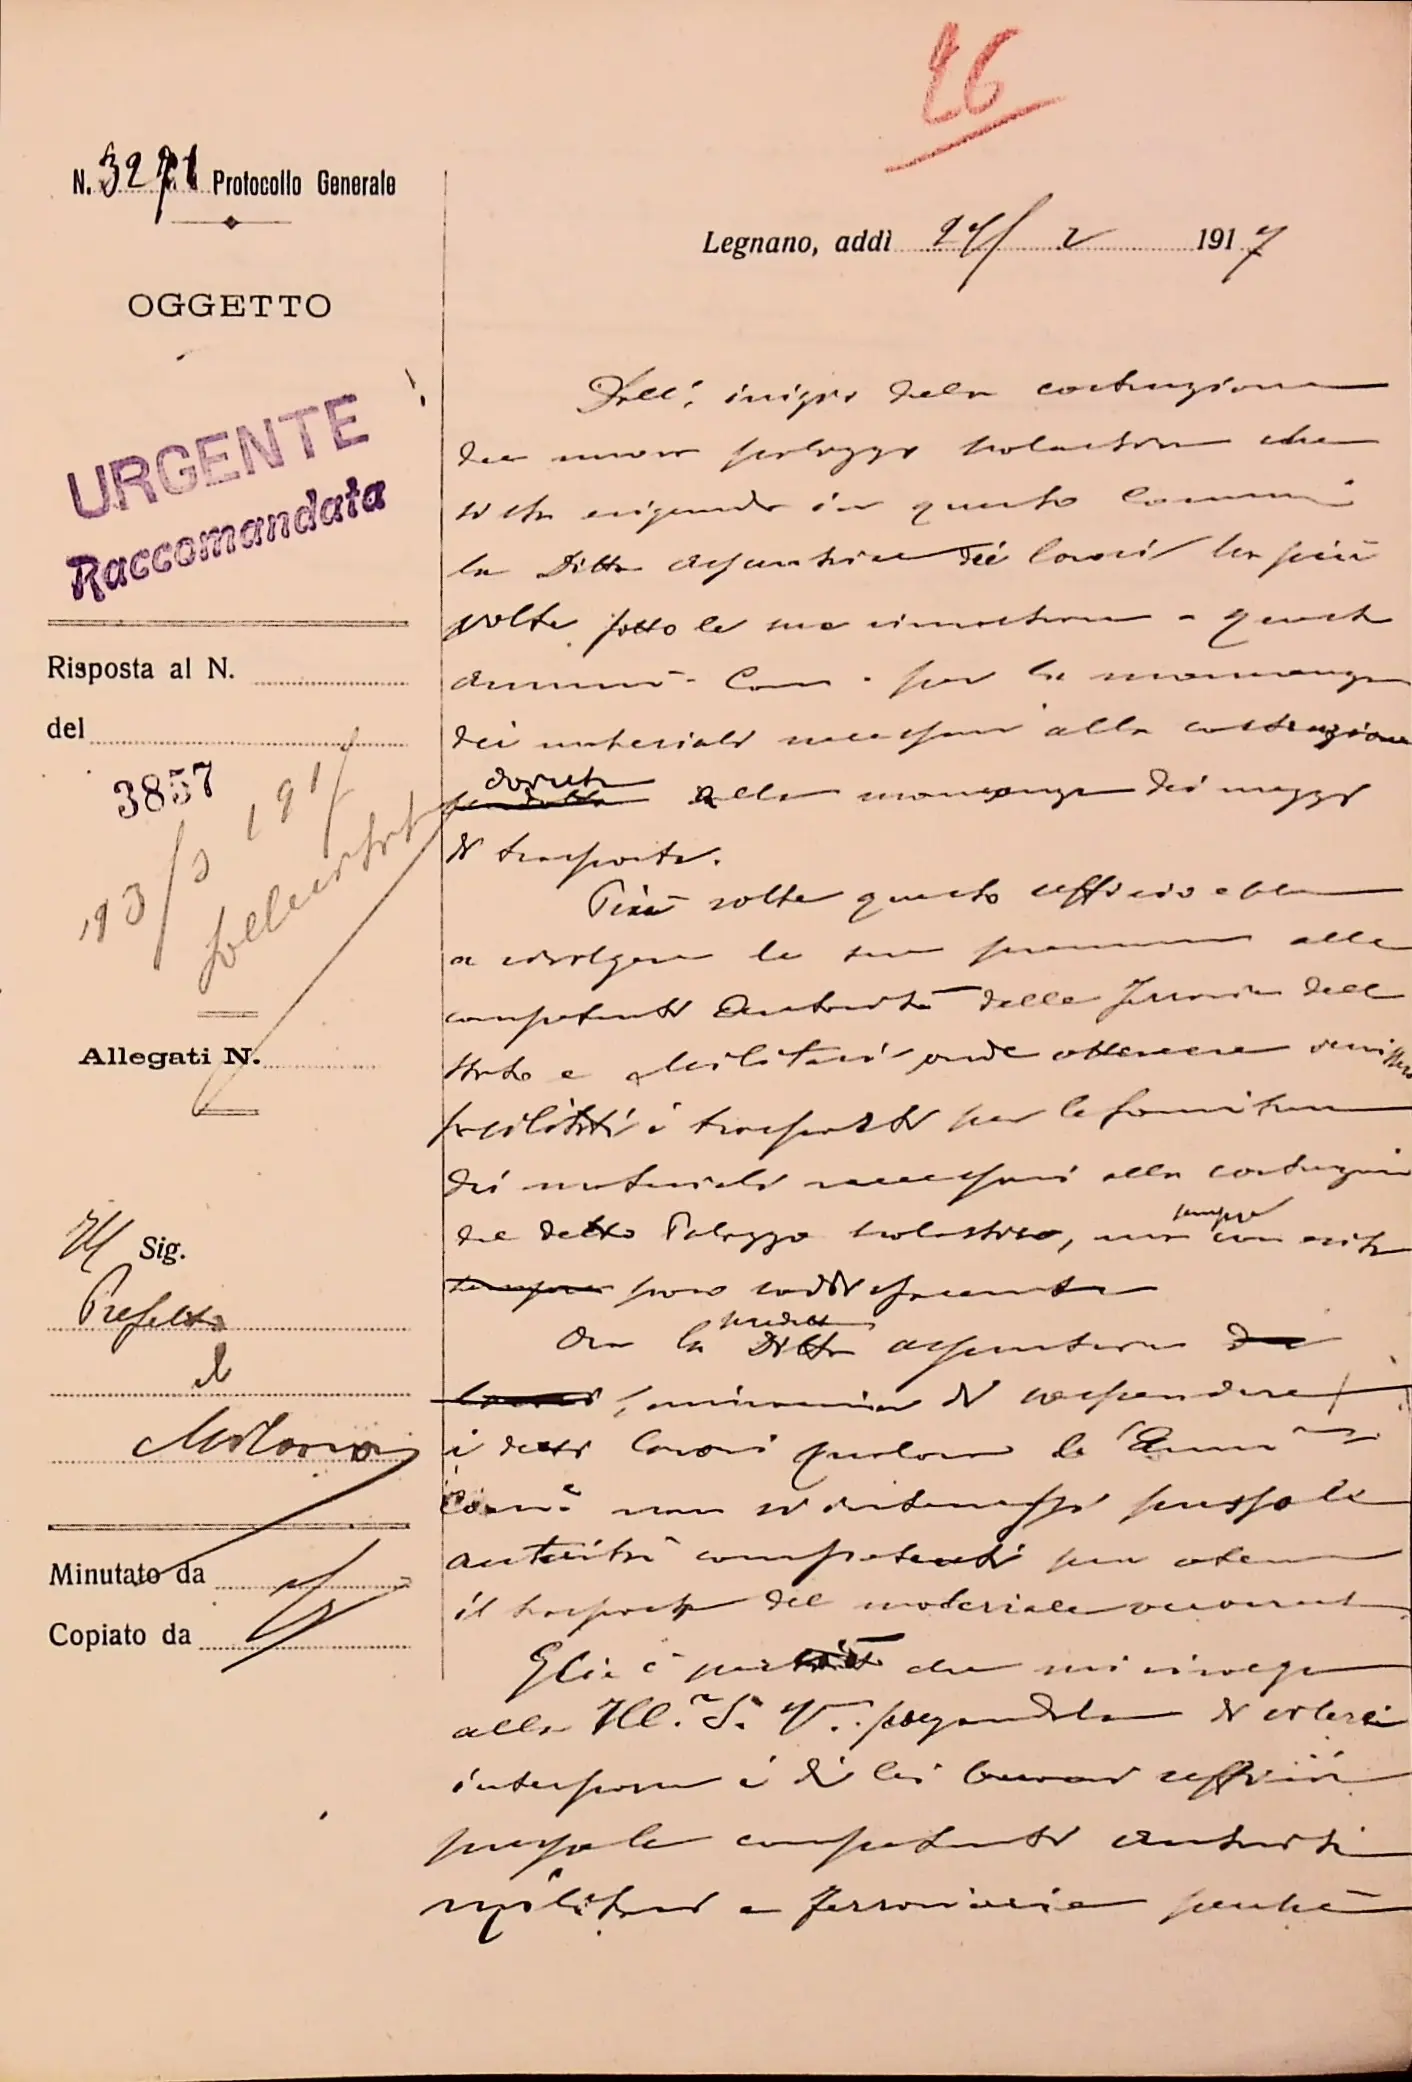 26
N. 3271 Protocollo Generale
Legnano, addì 27/ 2 1917
OGGETTO
URGENTE
Raccomandata
Risposta al N.
del
3857
13/3 1917
Allegati N.
Ill Sig.
Prefetto
di
Milano
Minutato da
Copiato da
Dall' inizio della costruzione
del nuovo palazzo scolastico che
si sta erigendo in questo Comune
la Ditta assuntrice dei lavori ha più
volte fatto le sue rimostranze a questa
Ammne Com. per la mancanza
dei materiali necessari alla costruzione
dovuta alla mancanza dei mezzi
di trasporto.
Più volte questo ufficio ebbe
a rivolgere le sue premure alle
competenti Autorità delle Ferrovie dello
Stato e Militari onde ottenere venissero
facilitati i trasporti per la fornitura
dei materiali necessari alla costruzione
del detto Palazzo scolastico, ma sempre con esito
poco soddisfacente
Ora la predetta Ditta assuntrice dei
lavori, minaccia di sospendere
i detti lavori qualora la Ammne
Come non si interessi presso le
autorità competenti per ottenere
il trasporto del materiale occorrente.
Egli è perciò che mi rivolgo
alla Ill. S. V. pregandola di volersi
interporre i di lei buoni uffici
presso le competenti autorità
militari e ferroviarie perchè